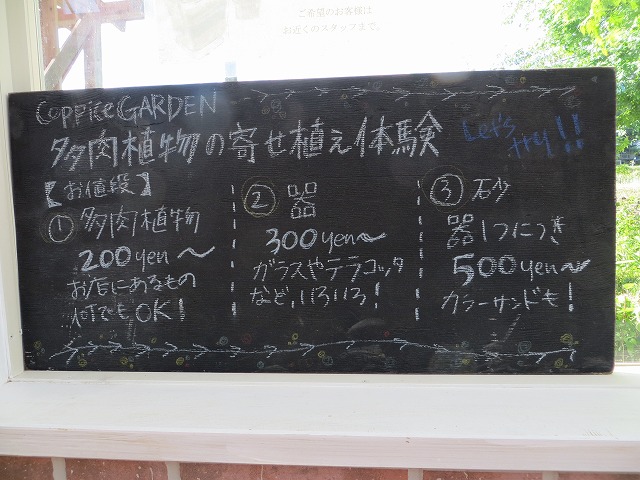 ご希望のお客様は
お近くのスタッフまで。
Coppice GARDEN
多肉植物の寄せ植え体験
Let's try!!
【お値段】
① 多肉植物
200yen〜
お店にあるもの
何でもOK!
② 器
300yen〜
ガラスやテラコッタ
など、いろいろ!
③ 石砂
器1つにつき
500yen〜
カラーサンドも!